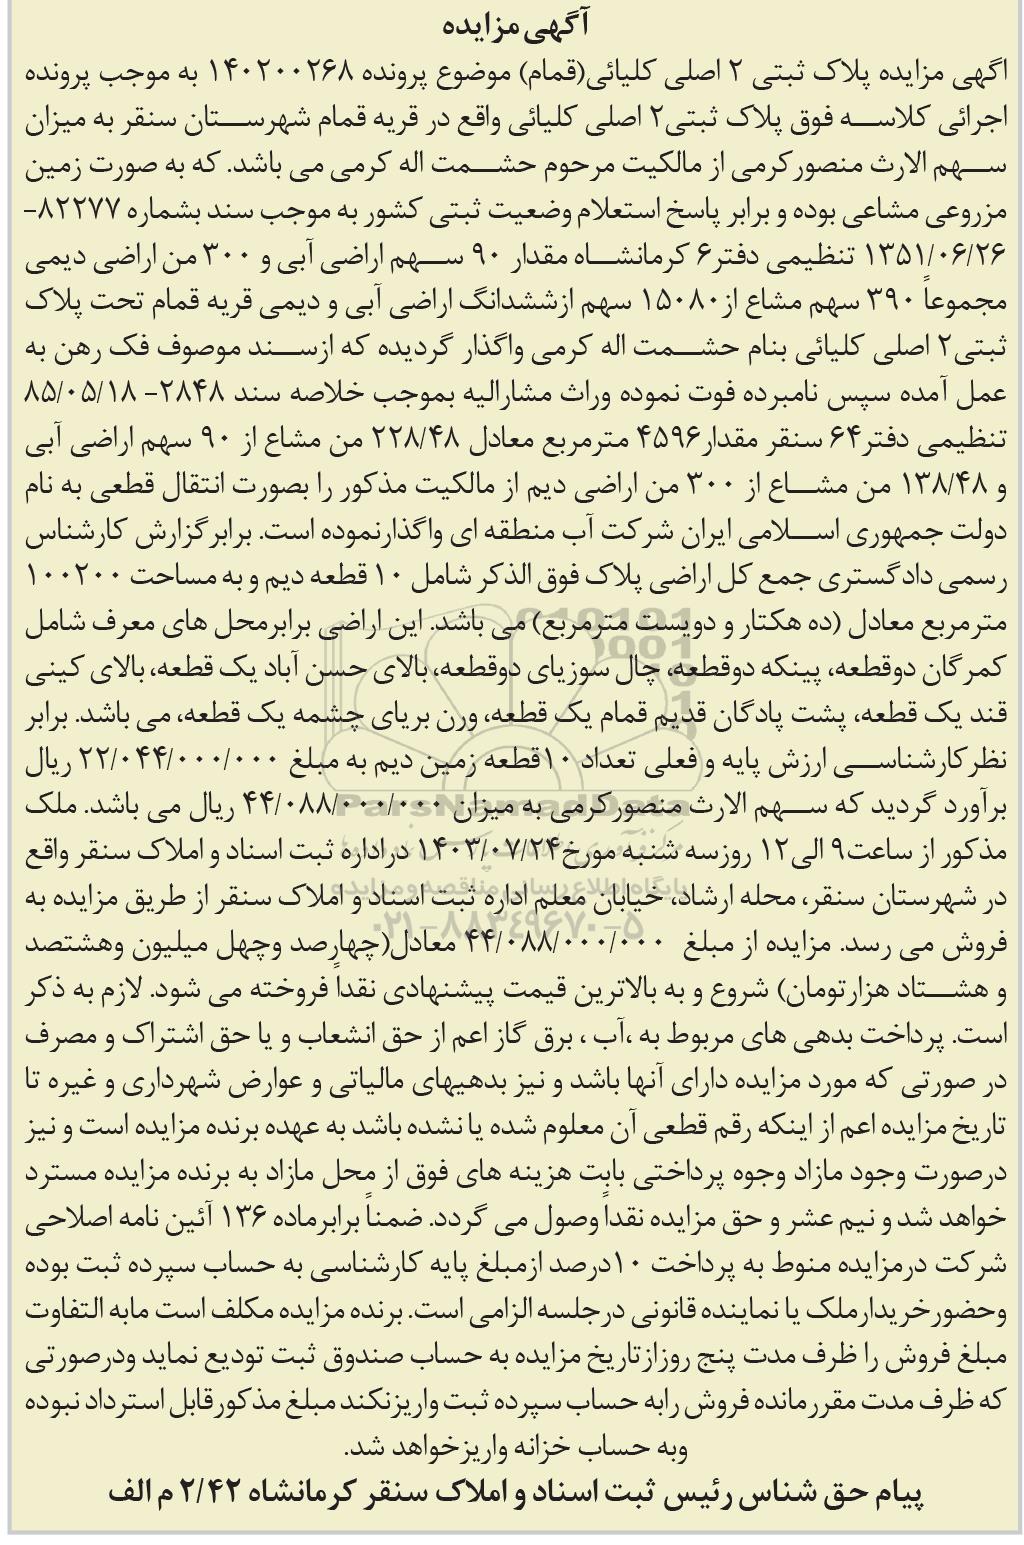 آگهی مزایده
اگهی مزایده پلاک ثبتی ۲ اصلی کلیائی(قمام) موضوع پرونده ۱۴۰۲۰۰۲۶۸ به موجب پرونده
اجرائی کلاسه فوق پلاک ثبتی۲ اصلی کلیائی واقع در قریه قمام شهرستان سنقر به میزان
سهم الارث منصورکرمی از مالکیت مرحوم حشمت اله کرمی می باشد. که به صورت زمین
مزروعی مشاعی بوده و برابر پاسخ استعلام وضعیت ثبتی کشور به موجب سند بشماره ۸۲۲۷۷-
۱۳۵۱/۰۶/۲۶ تنظیمی دفتر۶ کرمانشاه مقدار ۹۰ سهم اراضی آبی و ۳۰۰ من اراضی دیمی
مجموعاً ۳۹۰ سهم مشاع از۱۵۰۸۰ سهم ازششدانگ اراضی آبی و دیمی قریه قمام تحت پلاک
ثبتی۲ اصلی کلیائی بنام حشمت اله کرمی واگذار گردیده که ازسند موصوف فک رهن به
عمل آمده سپس نامبرده فوت نموده وراث مشارالیه بموجب خلاصه سند ۲۸۴۸- ۸۵/۰۵/۱۸
تنظیمی دفتر۶۴ سنقر مقدار۴۵۹۶ مترمربع معادل ۲۲۸/۴۸ من مشاع از ۹۰ سهم اراضی آبی
و ۱۳۸/۴۸ من مشاع از ۳۰۰ من اراضی دیم از مالکیت مذکور را بصورت انتقال قطعی به نام
دولت جمهوری اسلامی ایران شرکت آب منطقه ای واگذارنموده است. برابرگزارش کارشناس
رسمی دادگستری جمع کل اراضی پلاک فوق الذکر شامل ۱۰ قطعه دیم و به مساحت ۱۰۰۲۰۰
مترمربع معادل (ده هکتار و دویست مترمربع) می باشد. این اراضی برابرمحل های معرف شامل
کمرگان دوقطعه، پینکه دوقطعه، چال سوزیای دوقطعه، بالای حسن آباد یک قطعه، بالای کینی
قند یک قطعه، پشت پادگان قدیم قمام یک قطعه، ورن بریای چشمه یک قطعه، می باشد. برابر
نظرکارشناسی ارزش پایه و فعلی تعداد ۱۰قطعه زمین دیم به مبلغ ۲۲/۰۴۴/۰۰۰/۰۰۰ ریال
برآورد گردید که سهم الارث منصورکرمی به میزان ۴۴/۰۸۸/۰۰۰/۰۰۰ ریال می باشد. ملک
مذکور از ساعت۹ الی۱۲ روزسه شنبه مورخ۱۴۰۳/۰۷/۲۴ دراداره ثبت اسناد و املاک سنقر واقع
در شهرستان سنقر، محله ارشاد، خیابان معلم اداره ثبت اسناد و املاک سنقر از طریق مزایده به
فروش می رسد. مزایده از مبلغ ۴۴/۰۸۸/۰۰۰/۰۰۰ معادل(چهارصد وچهل میلیون وهشتصد
و هشتاد هزارتومان) شروع و به بالاترین قیمت پیشنهادی نقداً فروخته می شود. لازم به ذکر
است. پرداخت بدهی های مربوط به ،آب ، برق گاز اعم از حق انشعاب و یا حق اشتراک و مصرف
در صورتی که مورد مزایده دارای آنها باشد و نیز بدهیهای مالیاتی و عوارض شهرداری و غیره تا
تاریخ مزایده اعم از اینکه رقم قطعی آن معلوم شده یا نشده باشد به عهده برنده مزایده است و نیز
درصورت وجود مازاد وجوه پرداختی بابت هزینه های فوق از محل مازاد به برنده مزایده مسترد
خواهد شد و نیم عشر و حق مزایده نقداً وصول می گردد. ضمناً برابرماده ۱۳۶ آئین نامه اصلاحی
شرکت درمزایده منوط به پرداخت ۱۰درصد ازمبلغ پایه کارشناسی به حساب سپرده ثبت بوده
وحضورخریدارملک یا نماینده قانونی درجلسه الزامی است. برنده مزایده مکلف است مابه التفاوت
مبلغ فروش را ظرف مدت پنج روزازتاریخ مزایده به حساب صندوق ثبت تودیع نماید ودرصورتی
که ظرف مدت مقررمانده فروش رابه حساب سپرده ثبت واریزنکند مبلغ مذکورقابل استرداد نبوده
وبه حساب خزانه واریزخواهد شد.
پیام حق شناس رئیس ثبت اسناد و املاک سنقر کرمانشاه ۲/۴۲ م الف
ParsNamadData
پایگاه اطلاع رسانی مناقصه و مزایده
۰۲۱-۸۸۳۴۹۶۷۰-۵